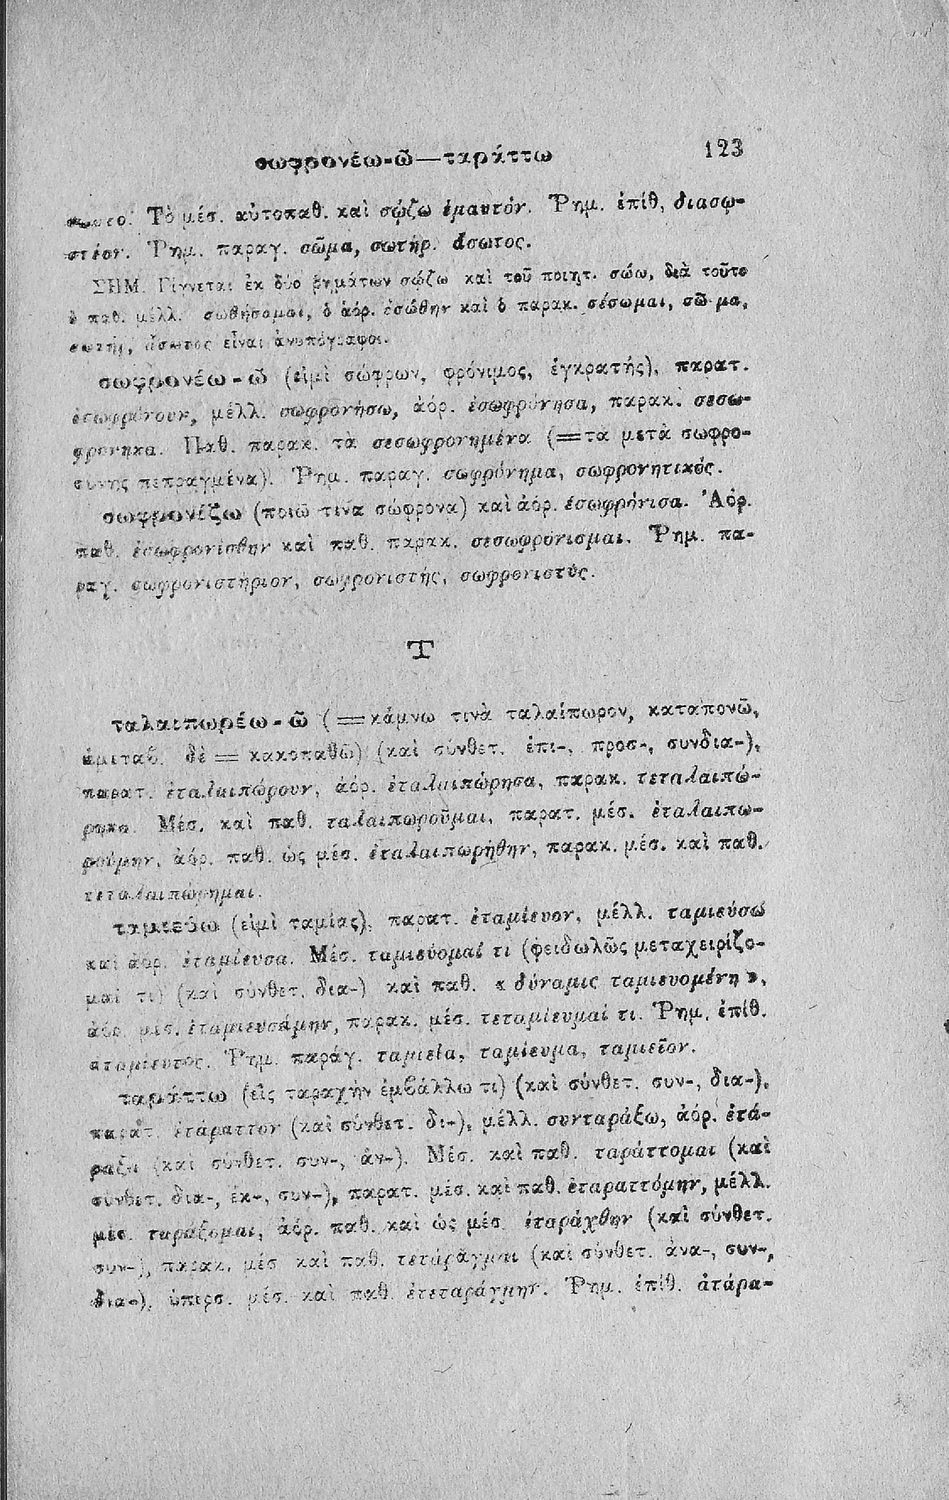 σωφρονέω-ῶ—ταράττω 123
Τὸ μέσ. αὐτοπαθ. καὶ σῴζω ἐμαυτόν. Ῥημ. ἐπίθ, διασω-
στέον. Ῥημ. παραγ. σῶμα, σωτήρ. ἄσωτος.
ΣΗΜ. Γίγνεται ἐκ δύο ῥημάτων σῴζω καὶ τοῦ ποιητ. σώω, διὰ τοῦτο
ὁ παθ. μέλλ. σωθήσομαι, ὁ ἀόρ. ἐσώθην καὶ ὁ παρακ. σέσωμαι, σῶ-μα,
σωτήρ, ἄσωτος εἶναι ἀνυπόγραφοι.
σωφρονέω-ῶ (εἰμὶ σώφρων, φρόνιμος, ἐγκρατής), παρατ.
ἐσωφρόνουν, μέλλ. σωφρονήσω, ἀόρ. ἐσωφρόνησα, παρακ. σεσω-
φρόνηκα. Παθ. παρακ. τὰ σεσωφρονημένα (=τὰ μετὰ σωφρο-
σύνης πεπραγμένα). Ῥημ. παραγ. σωφρόνημα, σωφρονητικός.
σωφρονίζω (ποιῶ τινα σώφρονα) καὶ ἀόρ. ἐσωφρόνισα. Ἀόρ.
παθ. ἐσωφρονίσθην καὶ παθ. παρακ. σεσωφρόνισμαι. Ῥημ. πα-
ραγ. σωφρονιστήριον, σωφρονιστής, σωφρονιστύς.
Τ
ταλαιπωρέω-ῶ (=κάμνω τινὰ ταλαίπωρον, καταπονῶ,
ἀμεταβ. δὲ = κακοπαθῶ) (καὶ σύνθετ. ἐπι-, προσ-, συνδια-),
παρατ. ἐταλαιπώρουν, ἀόρ. ἐταλαιπώρησα, παρακ. τεταλαιπώ-
ρηκα. Μέσ. καὶ παθ. ταλαιπωροῦμαι, παρατ. μέσ. ἐταλαιπω-
ρούμην, ἀόρ. παθ. ὡς μέσ. ἐταλαιπωρήθην, παρακ. μέσ. καὶ παθ.
τεταλαιπώρημαι.
ταμιεύω (εἰμὶ ταμίας), παρατ. ἐταμίευον, μέλλ. ταμιεύσω
καὶ ἀόρ. ἐταμίευσα. Μέσ. ταμιεύομαί τι (φειδωλῶς μεταχειρίζο-
μαί τι) (καὶ σύνθετ. δια-) καὶ παθ. « δύναμις ταμιευομένη »,
ἀόρ. μέσ. ἐταμιευσάμην, παρακ. μέσ. τεταμίευμαί τι. Ῥημ. ἐπίθ.
ἀταμίευτος. Ῥημ. παράγ. ταμιεία, ταμίευμα, ταμιεῖον.
ταράττω (εἰς ταραχὴν ἐμβάλλω τι) (καὶ σύνθετ. συν-, δια-),
παρατ. ἐτάραττον (καὶ σύνθετ. δι-), μέλλ. συνταράξω, ἀόρ. ἐτά-
ραξα (καὶ σύνθετ. συν-, ἀν-). Μέσ. καὶ παθ. ταράττομαι (καὶ
σύνθετ. δια-, ἐκ-, συν-), παρατ. μέσ. καὶ παθ. ἐταραττόμην, μέλλ.
μέσ. ταράξομαι, ἀόρ. παθ. καὶ ὡς μέσ. ἐταράχθην (καὶ σύνθετ.
συν-), παρακ. μέσ. καὶ παθ. τετάραγμαι (καὶ σύνθετ. ἀνα-, συν-,
δια-), ὑπερσ. μέσ. καὶ παθ. ἐτεταράγμην. Ῥημ. ἐπίθ. ἀτάρα-